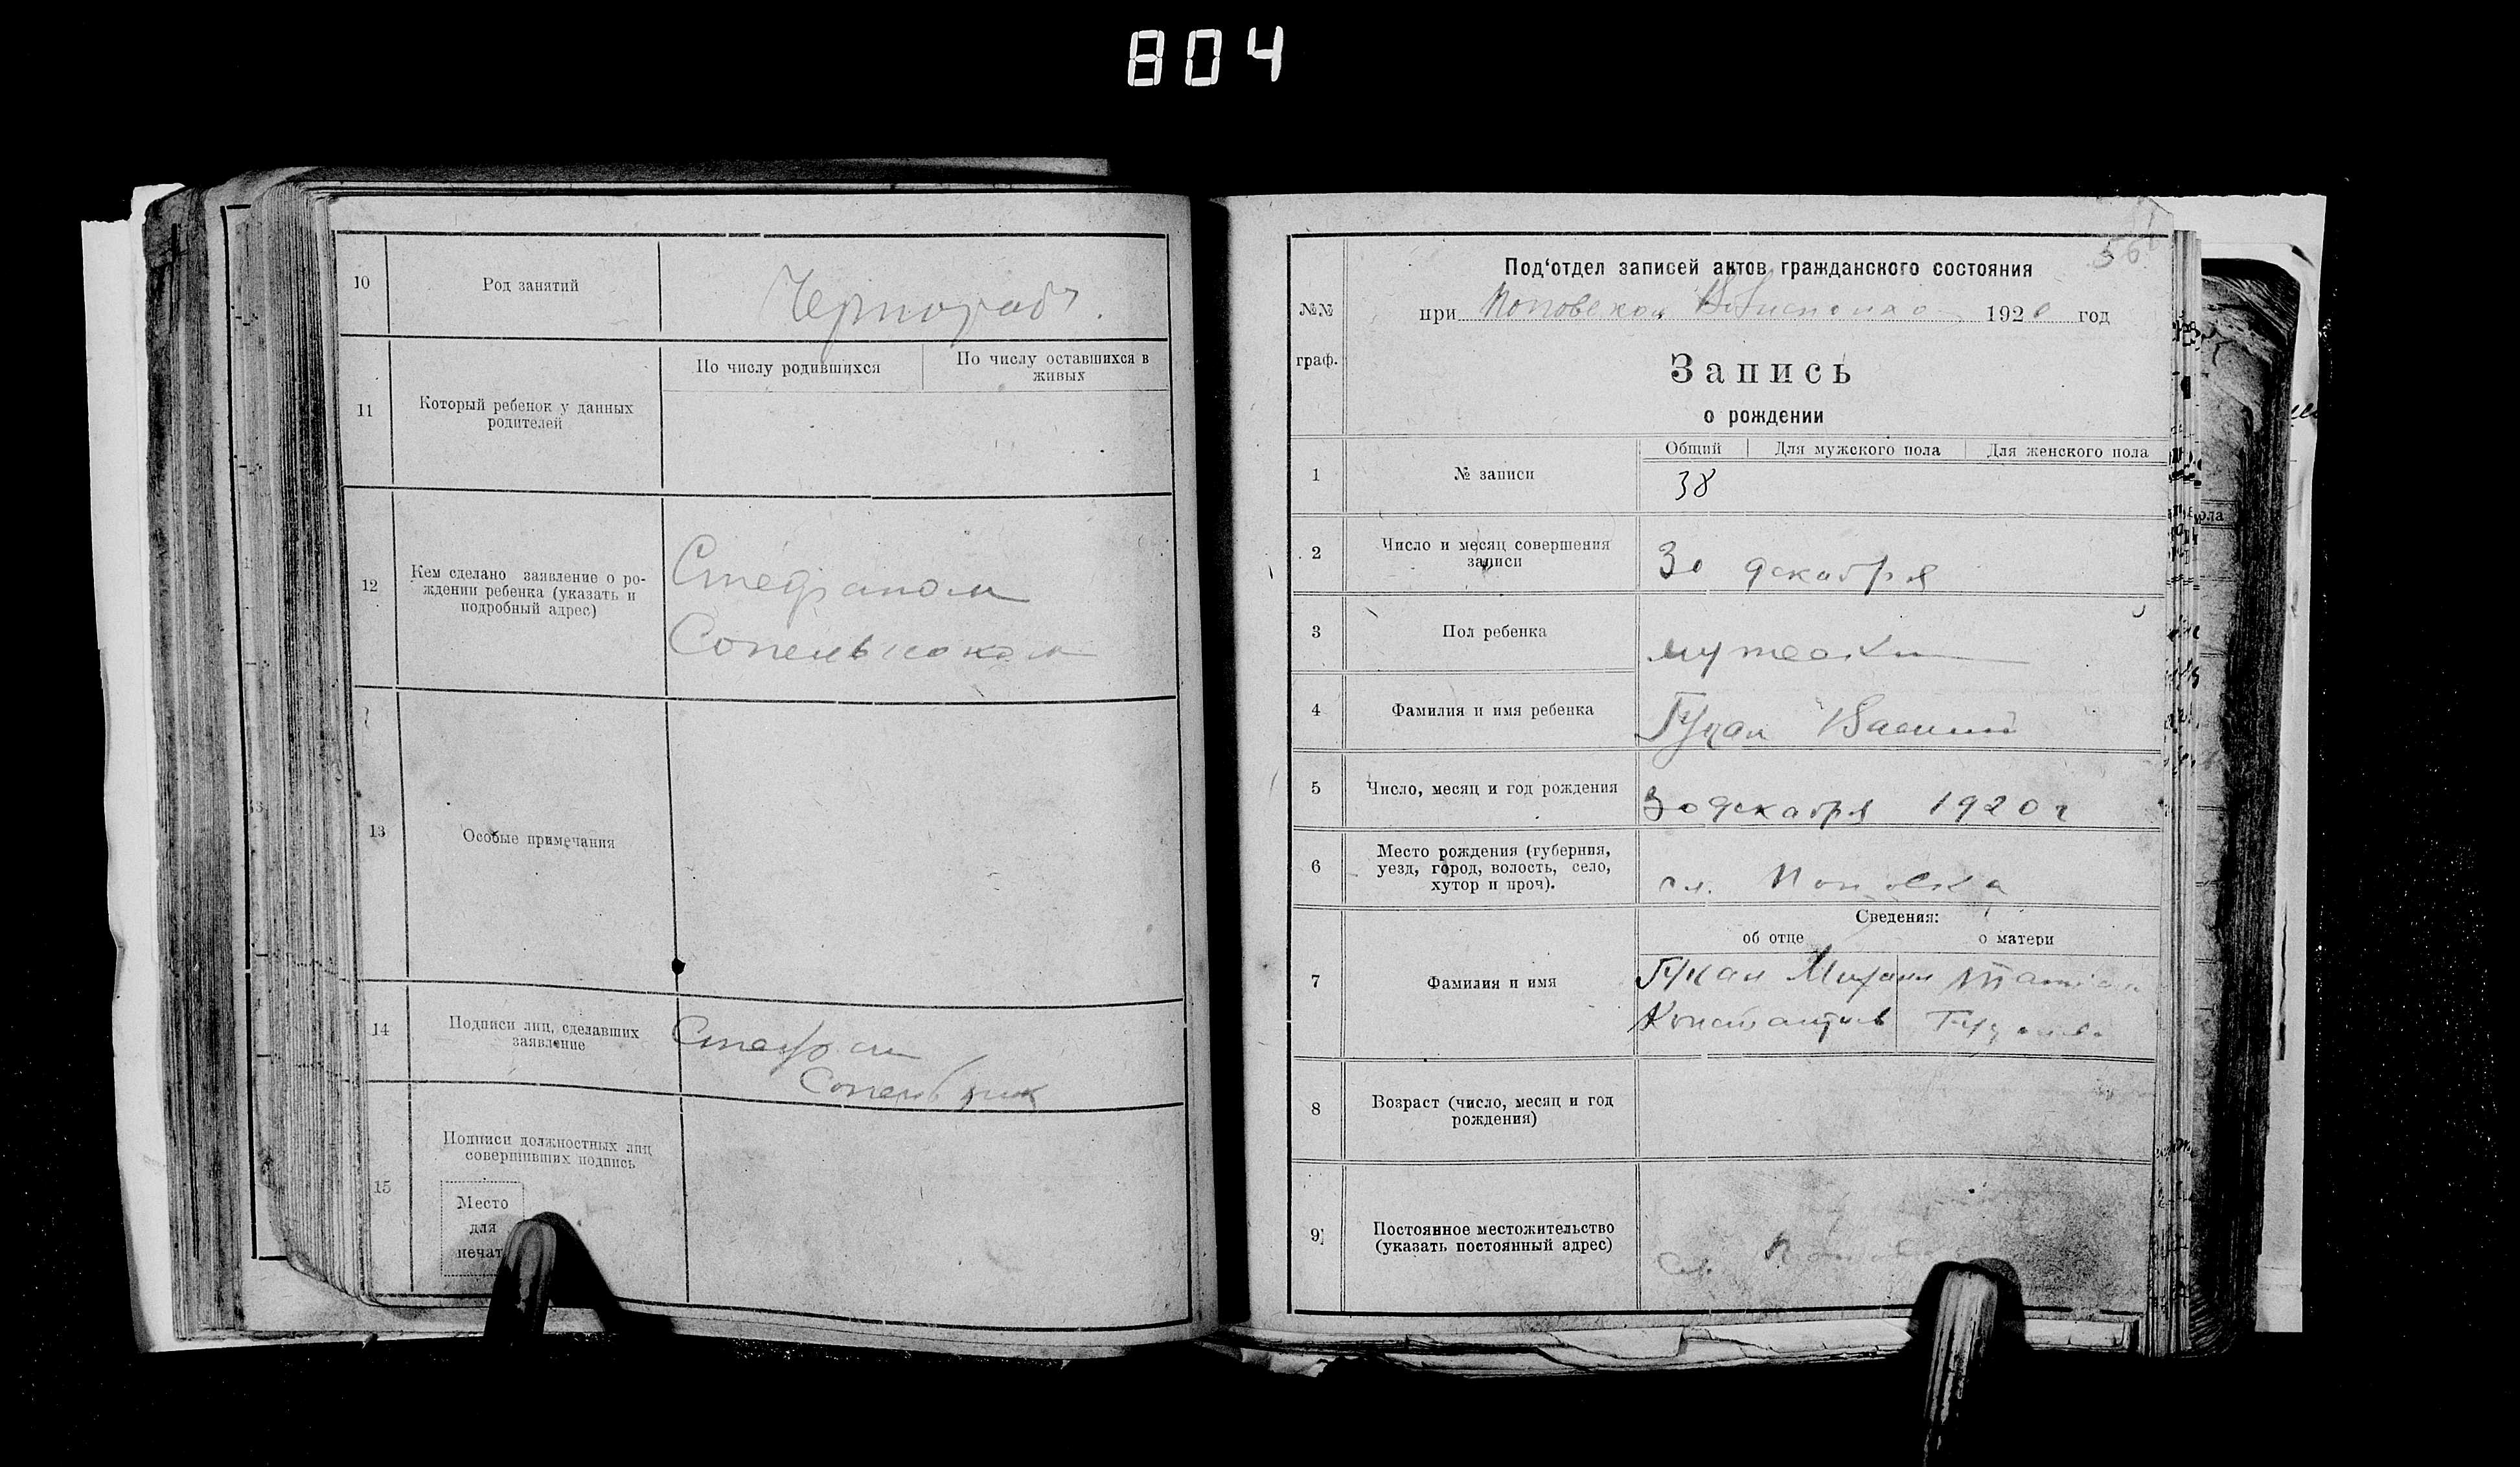 804
10
Род занятий
Чернораб.
11
Который ребенок у данных
родителей
По числу родившихся
По числу оставшихся в
живых
12
Кем сделано заявление о ро-
ждении ребенка (указать и
подробный адрес)
Стефаном
13
Особые примечания
14
Подписи лиц, сделавших
заявление
Стефан
15
Подписи должностных лиц
совершивших подпись
Место
для
печат
56
№№
граф.
Под‘отдел записей актов гражданского состояния
при Поповском 1920 год
Запись
о рождении
1
№ записи
Общий
Для мужского пола
Для женского пола
38
2
Число и месяц совершения
записи
30 декабря
3
Пол ребенка
4
Фамилия и имя ребенка
Василий
5
Число, месяц и год рождения
30 декабря 1920 г
6
Место рождения (губерния,
уезд, город, волость, село,
хутор и проч).
сл. Поповка
Сведения:
об отце
о матери
7
Фамилия и имя
Михаил
8
Возраст (число, месяц и год
рождения)
9
Постоянное местожительство
(указать постоянный адрес)
сл.